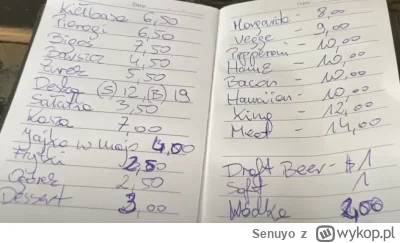 Kiełbasa 6,50
Pierogi 6,50
Bigos 7,50
Barszcz 4,50
Żurek 5,50
Deska (S) 12, (B) 19
Sałatka 3,50
Kasza 7,00
Jajko w majo 4,00
Frytki 2,50
Ogórek 2,50
Dessert 3,00
Date
Margarita - 8,00
Vegge - 9,00
Pepperoni - 10,00
Hawaiian - 10,00
Bacon - 10,00
King - 12,00
Meat - 14,00
Draft Beer - $1
Soft 1
Wódka 2,00
Senuyo z wykop.pl